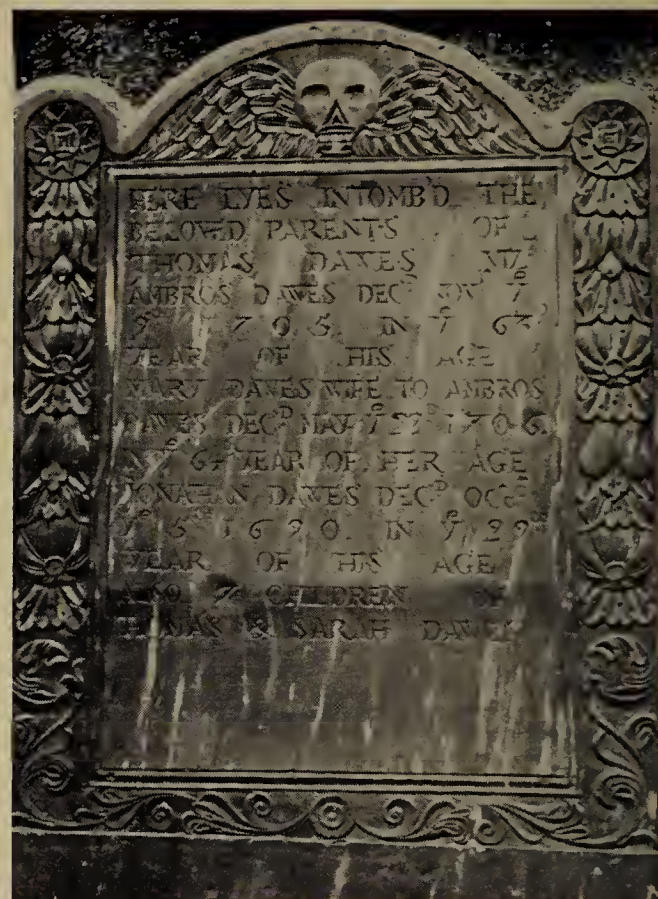 HERE LYES INTOMB'D THE
BELOVED PARENTS OF
THOMAS DAWES
AMBROS DAWES DECD
1705. IN Ye 63D
YEAR OF HIS AGE
MARY DAWES WIFE TO AMBROS
DAWES DECD MAY Ye 22D 1706.
IN Ye 64 YEAR OF HER AGE
JONATHAN DAWES DECD
Ye 5 1690. IN Ye 29
YEAR OF HIS AGE
ALSO 7 CHILDREN OF
THOMAS & SARAH DAWES